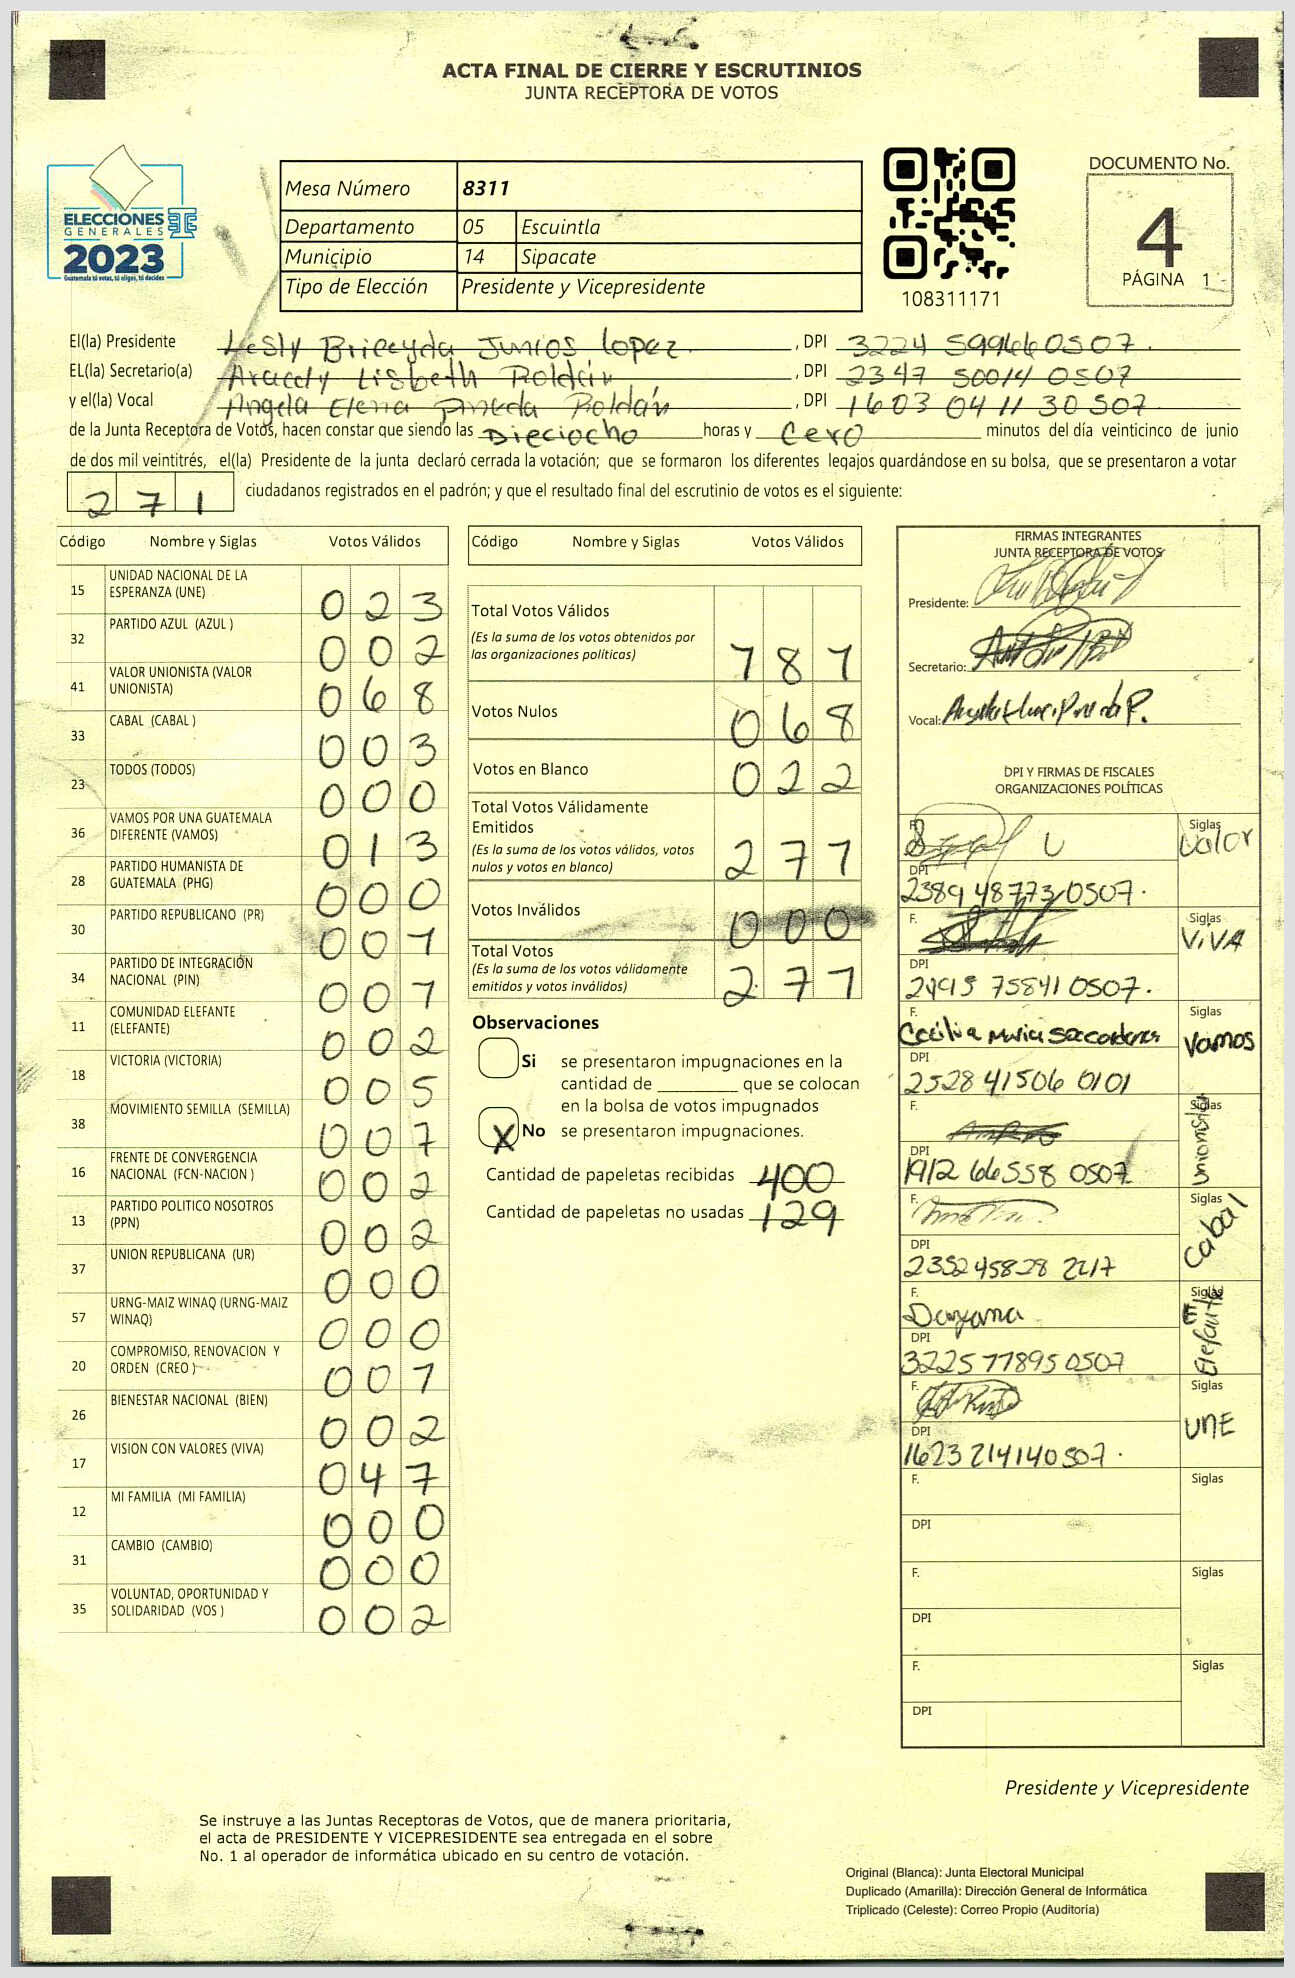 ACTA FINAL DE CIERRE Y ESCRUTINIOS
JUNTA RECEPTORA DE VOTOS
ELECCIONES
GENERALES
2023
Guatemala tú votas, tú eliges, tú decides
Mesa Número 8311
Departamento 05 Escuintla
Municipio 14 Sipacate
Tipo de Elección Presidente y Vicepresidente
108311171
DOCUMENTO No.
4
PÁGINA 1
El(la) Presidente Lesly Briceyda Junios Lopez , DPI 3224 59966 0507.
EL(la) Secretario(a) Aracely Lisbeth Roldán , DPI 2347 50014 0507
y el(la) Vocal Angela Elena Pineda Roldán , DPI 1603 04113 0507.
de la Junta Receptora de Votos, hacen constar que siendo las Dieciocho horas y Cero minutos del día veinticinco de junio
de dos mil veintitrés, el(la) Presidente de la junta declaró cerrada la votación; que se formaron los diferentes legajos quardándose en su bolsa, que se presentaron a votar
271 ciudadanos registrados en el padrón; y que el resultado final del escrutinio de votos es el siguiente:
Código Nombre y Siglas Votos Válidos
15 UNIDAD NACIONAL DE LA ESPERANZA (UNE) 023
32 PARTIDO AZUL (AZUL ) 002
41 VALOR UNIONISTA (VALOR UNIONISTA) 068
33 CABAL (CABAL ) 003
23 TODOS (TODOS) 000
36 VAMOS POR UNA GUATEMALA DIFERENTE (VAMOS) 013
28 PARTIDO HUMANISTA DE GUATEMALA (PHG) 000
30 PARTIDO REPUBLICANO (PR) 001
34 PARTIDO DE INTEGRACIÓN NACIONAL (PIN) 001
11 COMUNIDAD ELEFANTE (ELEFANTE) 002
18 VICTORIA (VICTORIA) 005
38 MOVIMIENTO SEMILLA (SEMILLA) 007
16 FRENTE DE CONVERGENCIA NACIONAL (FCN-NACION ) 002
13 PARTIDO POLITICO NOSOTROS (PPN) 002
37 UNION REPUBLICANA (UR) 000
57 URNG-MAIZ WINAQ (URNG-MAIZ WINAQ) 000
20 COMPROMISO, RENOVACION Y ORDEN (CREO ) 001
26 BIENESTAR NACIONAL (BIEN) 002
17 VISION CON VALORES (VIVA) 047
12 MI FAMILIA (MI FAMILIA) 000
31 CAMBIO (CAMBIO) 000
35 VOLUNTAD, OPORTUNIDAD Y SOLIDARIDAD (VOS ) 002
Código Nombre y Siglas Votos Válidos
Total Votos Válidos 181
(Es la suma de los votos obtenidos por
las organizaciones políticas)
Votos Nulos 068
Votos en Blanco 022
Total Votos Válidamente
Emitidos 271
(Es la suma de los votos válidos, votos
nulos y votos en blanco)
Votos Inválidos 000
Total Votos 271
(Es la suma de los votos válidamente
emitidos y votos inválidos)
Observaciones
Si se presentaron impugnaciones en la
cantidad de ________ que se colocan
en la bolsa de votos impugnados
X No se presentaron impugnaciones.
Cantidad de papeletas recibidas 400
Cantidad de papeletas no usadas 129
FIRMAS INTEGRANTES
JUNTA RECEPTORA DE VOTOS
Presidente:
Secretario:
Vocal:
DPI Y FIRMAS DE FISCALES
ORGANIZACIONES POLÍTICAS
F. Siglas Valor
DPI 2389 48773 0507.
F. Siglas VIVA
DPI 2495 75841 0507.
F. Siglas Vamos
DPI 2528 41506 0101
F. Siglas Unionista
DPI 1912 66558 0507
F. Siglas Cabal
DPI 2352 45828 2217
F. Dayana Siglas Elefante
DPI 3225 77895 0507
F. Siglas UNE
DPI 1623 21414 0507.
F. Siglas
DPI
F. Siglas
DPI
F. Siglas
DPI
Presidente y Vicepresidente
Se instruye a las Juntas Receptoras de Votos, que de manera prioritaria,
el acta de PRESIDENTE Y VICEPRESIDENTE sea entregada en el sobre
No. 1 al operador de informática ubicado en su centro de votación.
Original (Blanca): Junta Electoral Municipal
Duplicado (Amarilla): Dirección General de Informática
Triplicado (Celeste): Correo Propio (Auditoría)